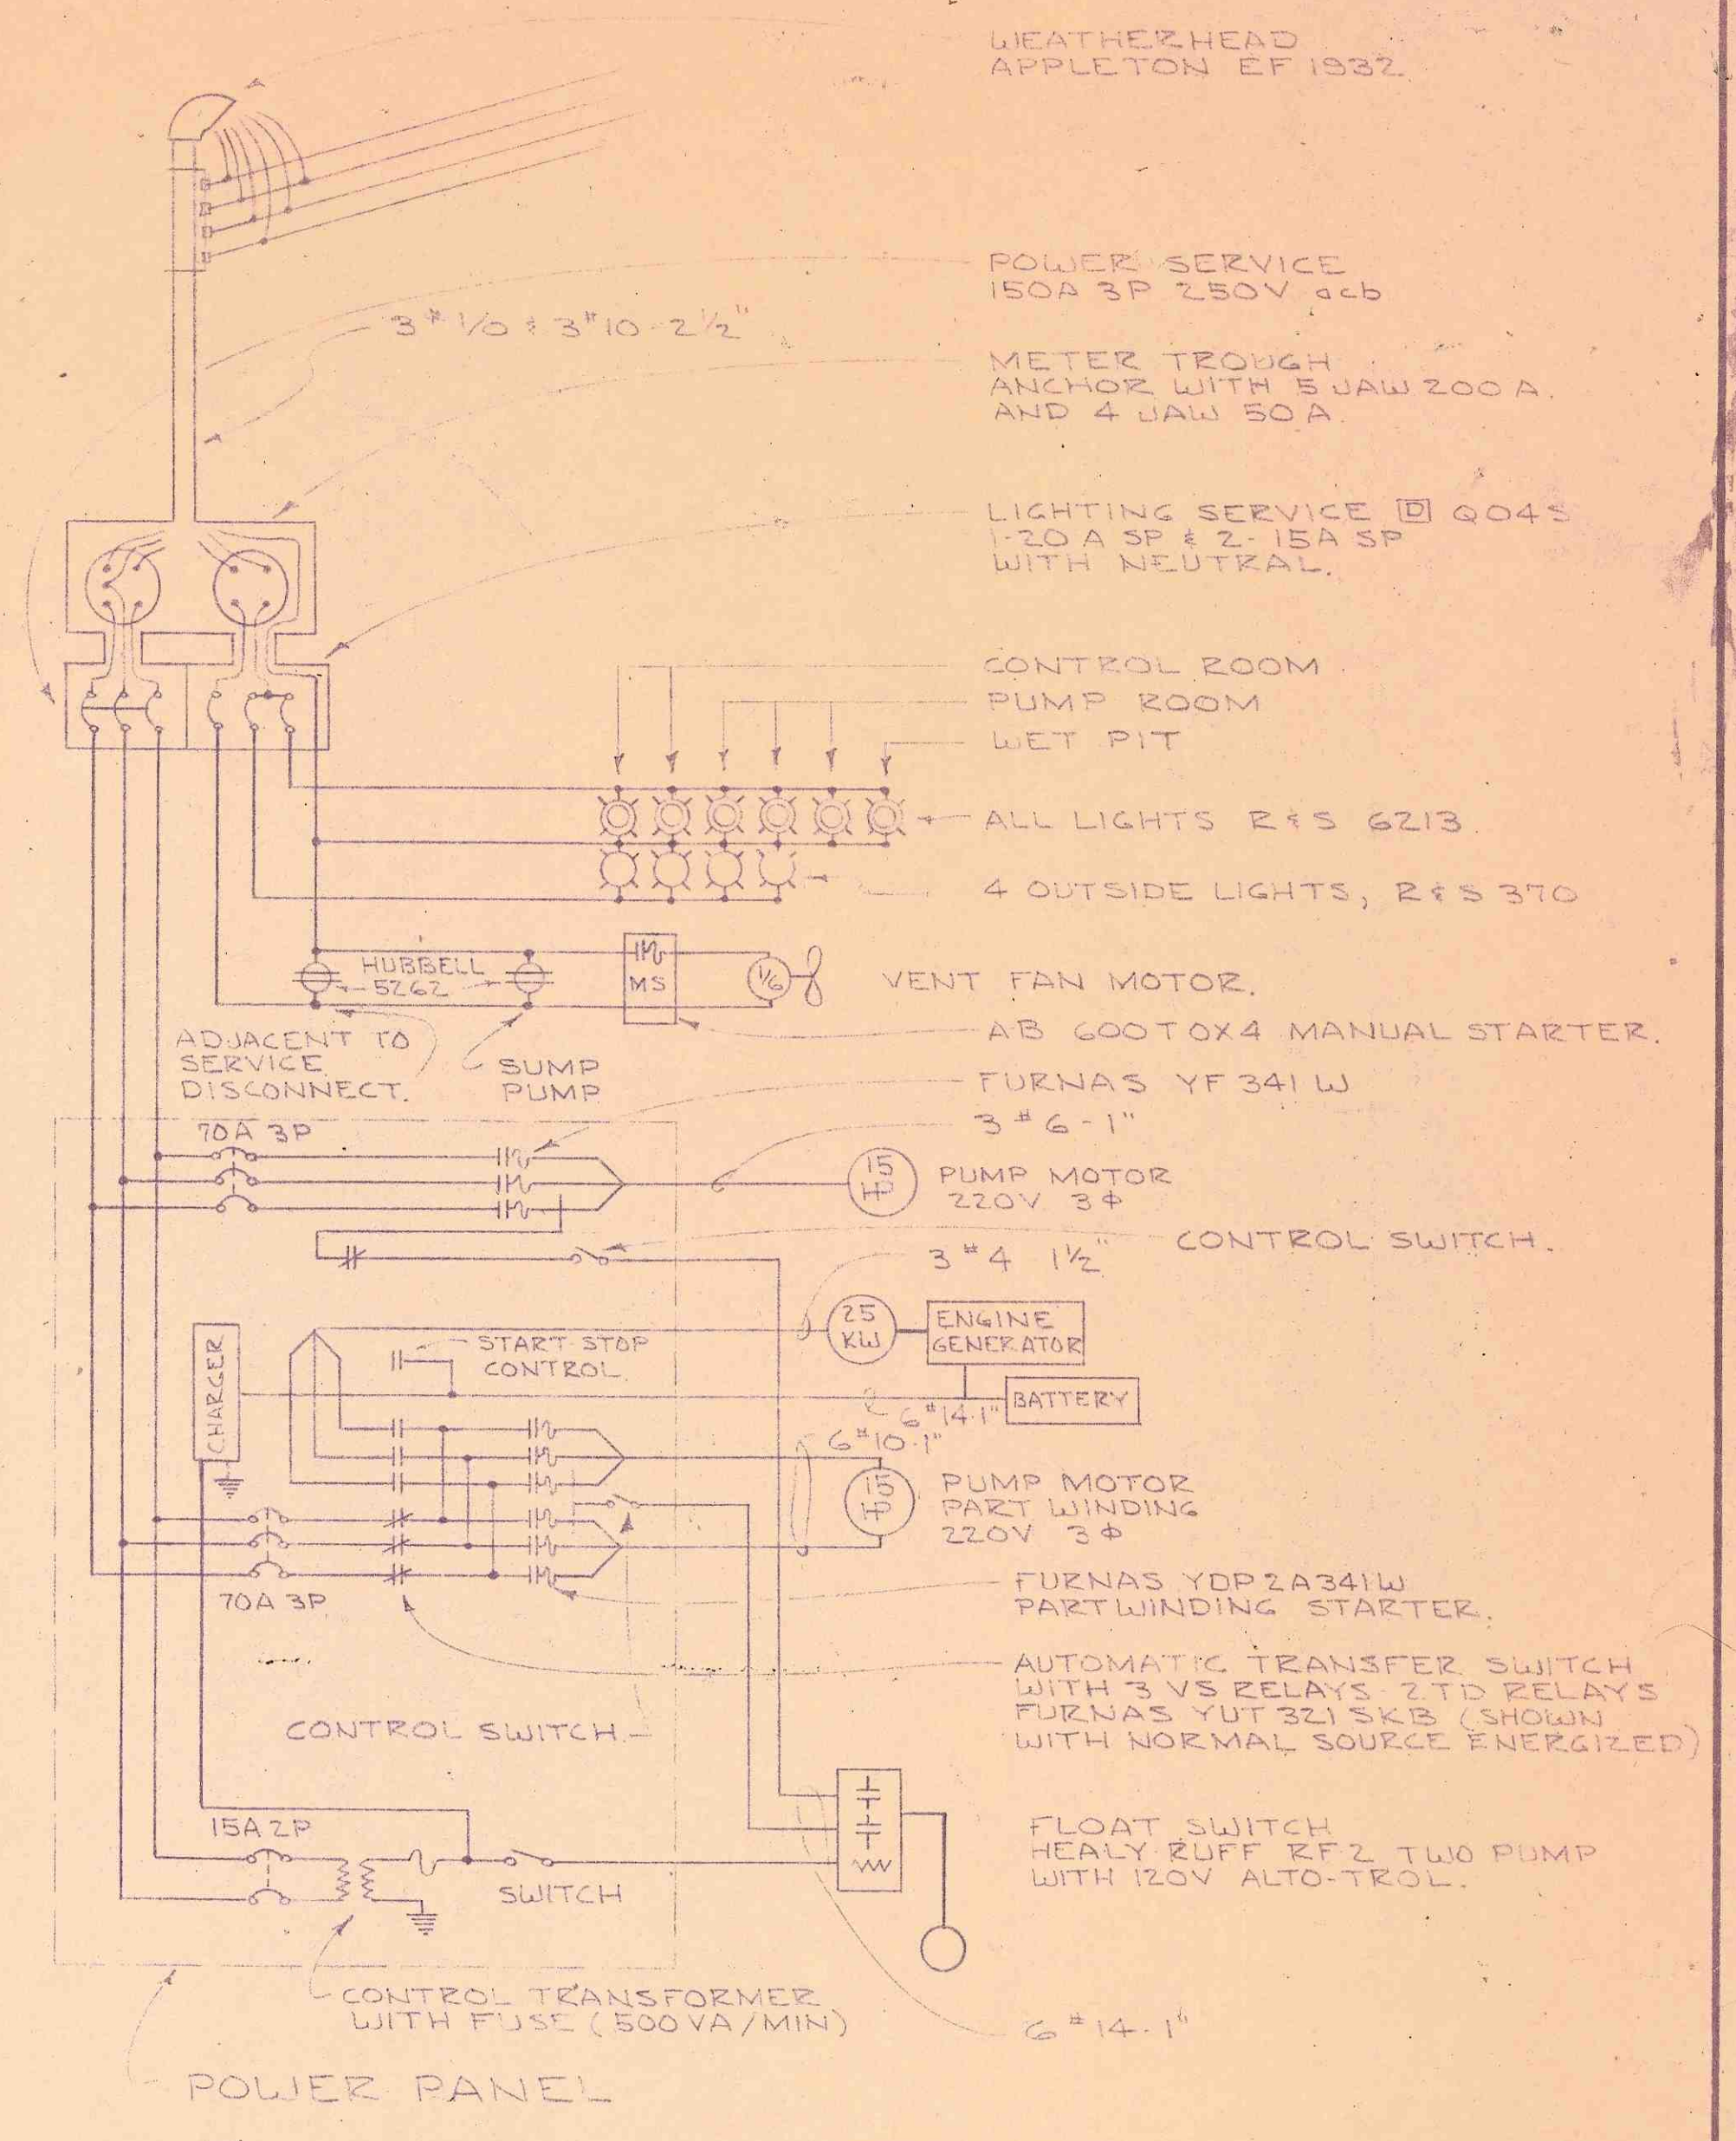 WEATHERHEAD
APPLETON EF 1932
POWER SERVICE
150A 3P 250V acb
3 # 1/0 & 3 #10 - 2 1/2"
METER TROUGH
ANCHOR WITH 5 JAW 200 A.
AND 4 JAW 50 A.
LIGHTING SERVICE D QO4S
1-20 A SP & 2-15A SP
WITH NEUTRAL.
CONTROL ROOM
PUMP ROOM
WET PIT
ALL LIGHTS R & S 6213
4 OUTSIDE LIGHTS, R & S 370
HUBBELL
5262
MS
1/6
VENT FAN MOTOR.
ADJACENT TO
SERVICE
DISCONNECT.
SUMP
PUMP
A-B 600 TOX4 MANUAL STARTER.
FURNAS YF 341 W
3 # 6 - 1"
70A 3P
15
HP
PUMP MOTOR
220V 3 Φ
CONTROL SWITCH.
3 # 4 1 1/2"
25
KW
ENGINE
GENERATOR
START-STOP
CONTROL
CHARGER
BATTERY
6 #14-1"
6 #10-1"
15
HP
PUMP MOTOR
PART WINDING
220V 3 Φ
70A 3P
FURNAS YDP2A341W
PART WINDING STARTER.
AUTOMATIC TRANSFER SWITCH
WITH 3 VS RELAYS 2 TD RELAYS
FURNAS YUT 321 SKB (SHOWN
WITH NORMAL SOURCE ENERGIZED)
CONTROL SWITCH.
15A 2P
SWITCH
FLOAT SWITCH
HEALY-RUFF RF-2 TWO PUMP
WITH 120V ALTO-TROL.
CONTROL TRANSFORMER
WITH FUSE (500 VA/MIN)
6 #14-1"
POWER PANEL